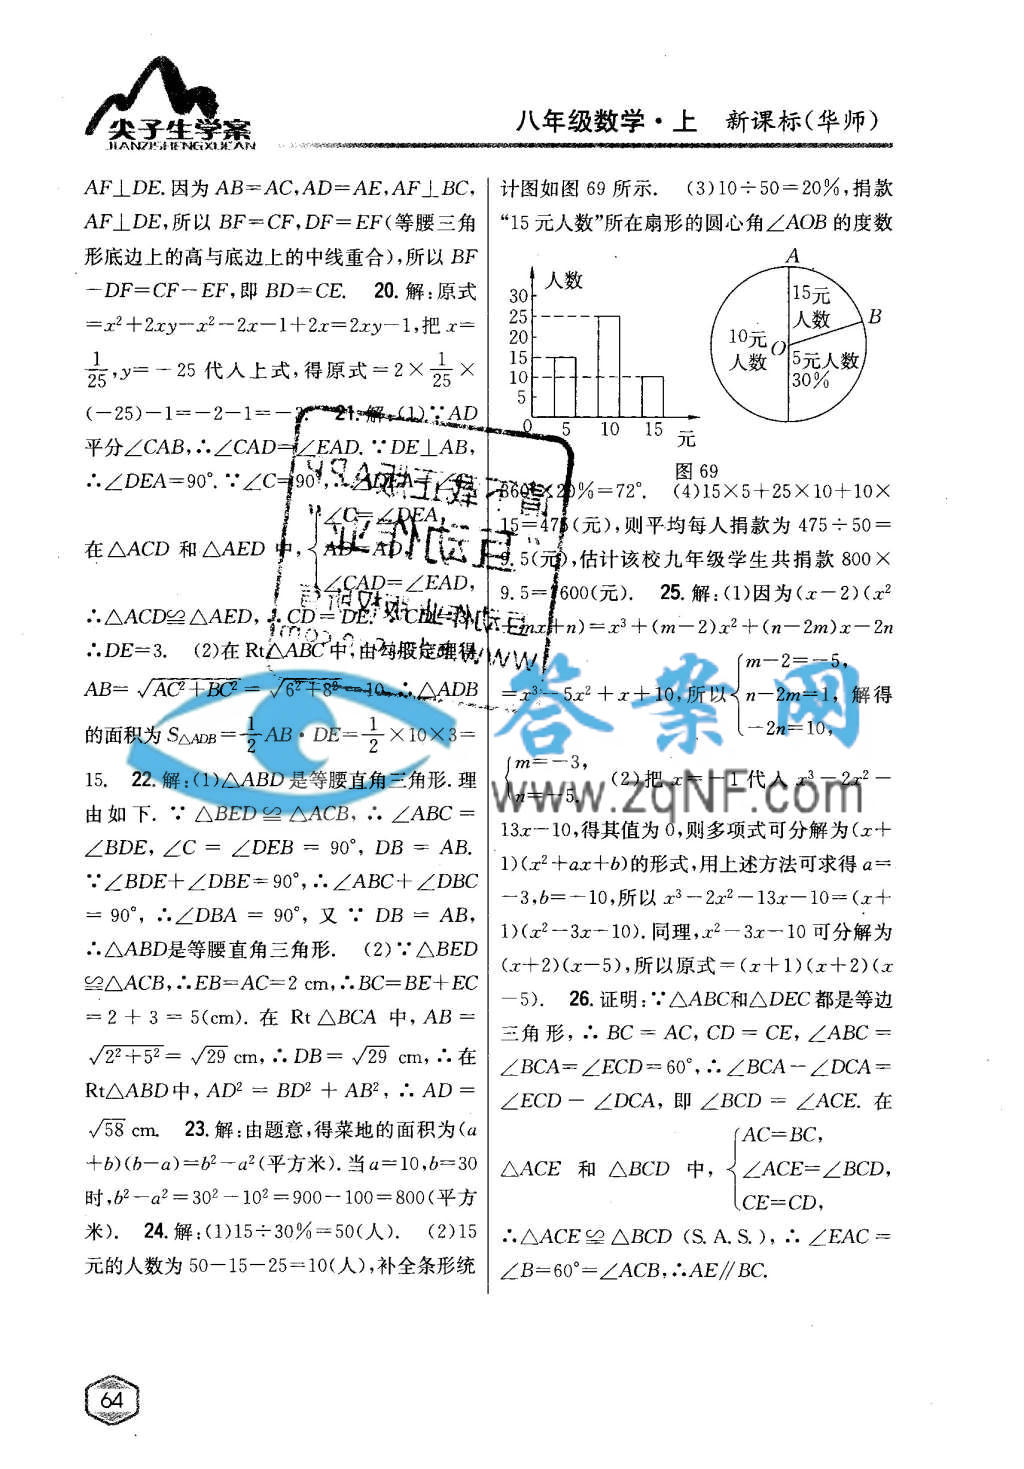 尖子生学案
JIANZISHENGXUEAN
八年级数学·上 新课标(华师)
AF⊥DE.因为 AB=AC,AD=AE,AF⊥BC,
AF⊥DE,所以 BF=CF,DF=EF(等腰三角
形底边上的高与底边上的中线重合),所以 BF
-DF=CF-EF,即 BD=CE. 20.解:原式
=x²+2xy-x²-2x-1+2x=2xy-1,把 x=
1/25,y=-25 代入上式,得原式=2×1/25×
(-25)-1=-2-1=-3. 21.解:(1)∵AD
平分∠CAB,∴∠CAD=∠EAD.∵DE⊥AB,
∴∠DEA=90°.∵∠C=90°,
∠C=∠DEA,
在△ACD 和△AED 中,{AD=AD,
∠CAD=∠EAD,
∴△ACD≌△AED,∴CD=DE.
∴DE=3. (2)在 Rt△ABC 中,由勾股定理得
AB=√(AC²+BC²)=√(6²+8²)=10,∴△ADB
的面积为 S△ADB=1/2 AB·DE=1/2×10×3=
15. 22.解:(1)△ABD 是等腰直角三角形.理
由如下.∵△BED≌△ACB,∴∠ABC=
∠BDE,∠C=∠DEB=90°,DB=AB.
∵∠BDE+∠DBE=90°,∴∠ABC+∠DBC
=90°,∴∠DBA=90°,又∵DB=AB,
∴△ABD是等腰直角三角形. (2)∵△BED
≌△ACB,∴EB=AC=2 cm,∴BC=BE+EC
=2+3=5(cm).在 Rt△BCA 中,AB=
√(2²+5²)=√29 cm,∴DB=√29 cm,∴在
Rt△ABD中,AD²=BD²+AB²,∴AD=
√58 cm. 23.解:由题意,得菜地的面积为(a
+b)(b-a)=b²-a²(平方米).当a=10,b=30
时,b²-a²=30²-10²=900-100=800(平方
米). 24.解:(1)15÷30%=50(人). (2)15
元的人数为 50-15-25=10(人),补全条形统
计图如图 69 所示. (3)10÷50=20%,捐款
“15 元人数”所在扇形的圆心角∠AOB 的度数
人数
30
25
20
15
10
5
0 5 10 15 元
A
B
O
15元
人数
10元
人数
5元人数
30%
图 69
360°×20%=72°. (4)15×5+25×10+10×
15=475(元),则平均每人捐款为 475÷50=
9.5(元),估计该校九年级学生共捐款 800×
9.5=7600(元). 25.解:(1)因为(x-2)(x²
+mx+n)=x³+(m-2)x²+(n-2m)x-2n
=x³-5x²+x+10,所以{m-2=-5,
n-2m=1, 解得
-2n=10,
{m=-3,
n=-5. (2)把 x=-1 代入 x³-2x²-
13x-10,得其值为 0,则多项式可分解为(x+
1)(x²+ax+b)的形式,用上述方法可求得 a=
-3,b=-10,所以 x³-2x²-13x-10=(x+
1)(x²-3x-10).同理,x²-3x-10 可分解为
(x+2)(x-5),所以原式=(x+1)(x+2)(x
-5). 26.证明:∵△ABC和△DEC都是等边
三角形,∴BC=AC,CD=CE,∠ABC=
∠BCA=∠ECD=60°,∴∠BCA-∠DCA=
∠ECD-∠DCA,即∠BCD=∠ACE.在
AC=BC,
△ACE 和 △BCD 中,{∠ACE=∠BCD,
CE=CD,
∴△ACE≌△BCD(S.A.S.),∴∠EAC=
∠B=60°=∠ACB,∴AE∥BC.
答案网
www.zqNF.com
64